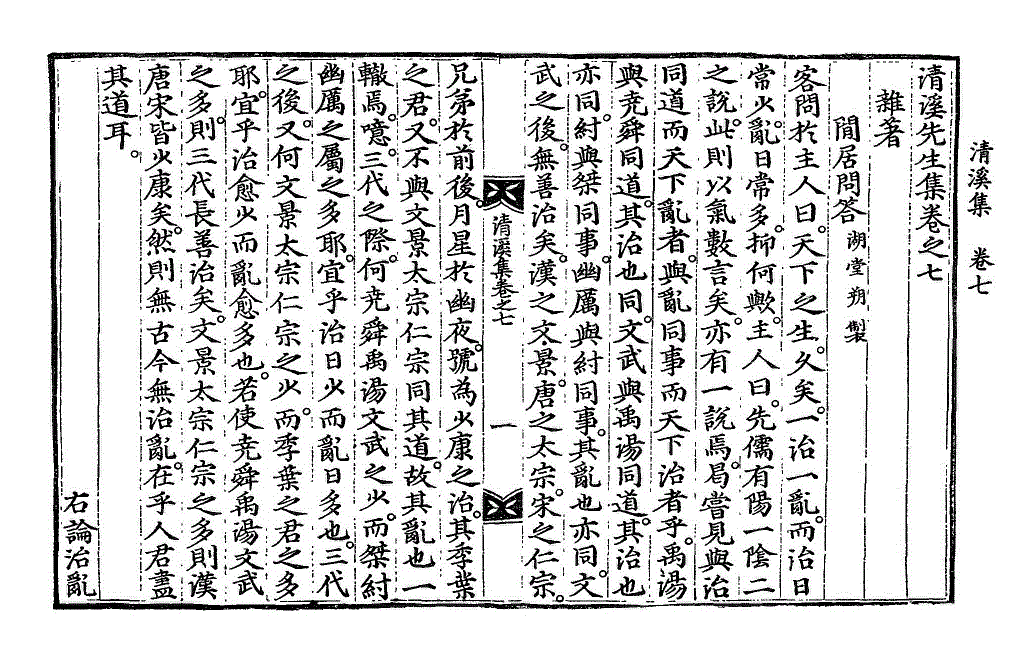 清溪集　卷七
清溪先生集卷之七
雜著
閒居問答 湖堂朔製
客問於主人曰。天下之生。久矣。一治一亂。而治日
常少。亂日常多。抑何歟。主人曰。先儒有陽一陰二
之說。此則以氣數言矣。亦有一說焉。曷嘗見與治
同道而天下亂者。與亂同事而天下治者乎。禹湯
與堯舜同道。其治也同。文武與禹湯同道。其治也
亦同。紂與桀同事。幽厲與紂同事。其亂也亦同。文
武之後。無善治矣。漢之文,景。唐之太宗。宋之仁宗。
清溪集卷之七
一
兄弟於前後。月星於幽夜。號為少康之治。其季葉
之君。又不與文景太宗仁宗同其道。故其亂也一
轍焉。噫。三代之際。何堯舜禹湯文武之少。而桀紂
幽厲之屬之多耶。宜乎治日少而亂日多也。三代
之後。又何文景太宗仁宗之少。而季葉之君之多
耶。宜乎治愈少而亂愈多也。若使堯舜禹湯文武
之多。則三代長善治矣。文景太宗仁宗之多則漢
唐宋皆少康矣。然則無古今無治亂。在乎人君盡
其道耳。
右論治亂